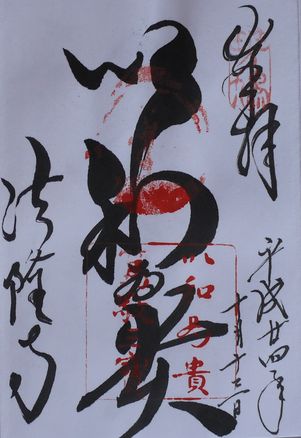 奉拝
平成廿四年
十月十三日
以和為貴
以和為貴
法隆寺